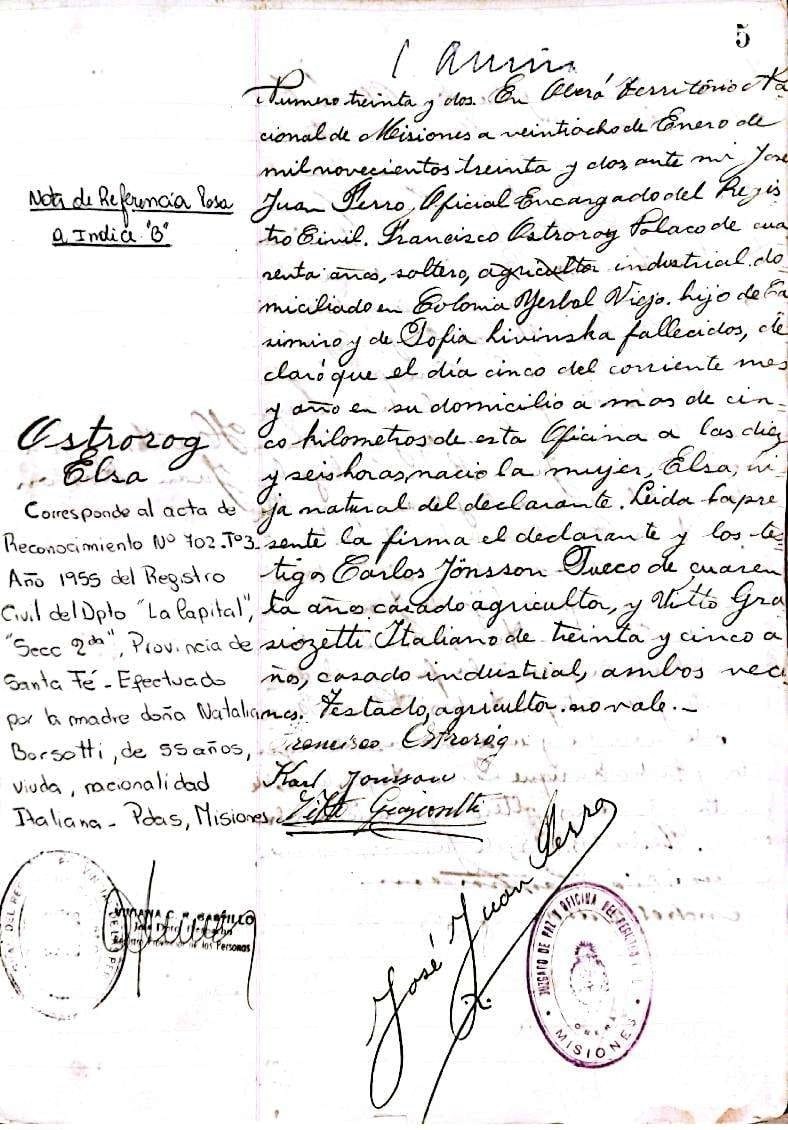 5
Numero treinta y dos. En Oberá Territorio Na-
cional de Misiones a veintiocho de Enero de
mil novecientos treinta y dos, ante mi José
Juan Perro, Oficial Encargado del Regis
tro Civil. Francisco Ostrorog Polaco de cua
renta años, soltero, agricultor industrial do-
miciliado en Colonia Yerbal Viejo. hijo de Ca
simiro y de Sofia Livinska fallecidos, de
claró que el día cinco del corriente mes
y año en su domicilio a mas de cin-
co kilometros de esta Oficina a las diez
y seis horas nacio la mujer, Elsa, hi
ja natural del declarante. Leida la pre
sente la firma el declarante y los tes-
tigos Carlos Jönsson Sueco de cuaren
ta años casado agricultor, y Vitto Gra
siozetti Italiano de treinta y cinco a
ños, casado industrial, ambos veci
nos. Testado, agricultor. no vale.-
Francisco Ostrorog
Karl Jonsson
José Juan Perro
Nota de Referencia Pasa
a Indice "B"
Ostrorog
Elsa
Corresponde al acta de
Reconocimiento Nº 702.Tº3.
Año 1955 del Registro
Civil del Dpto "La Capital",
"Secc 2da", Provincia de
Santa Fé - Efectuado
por la madre doña Natalia
Borsotti, de 55 años,
viuda, nacionalidad
Italiana - Pdas, Misiones
VIVIANA C. R. CASTILLO
de las Personas
JUZGADO DE PAZ Y OFICINA DEL REGISTRO
OBERA
MISIONES